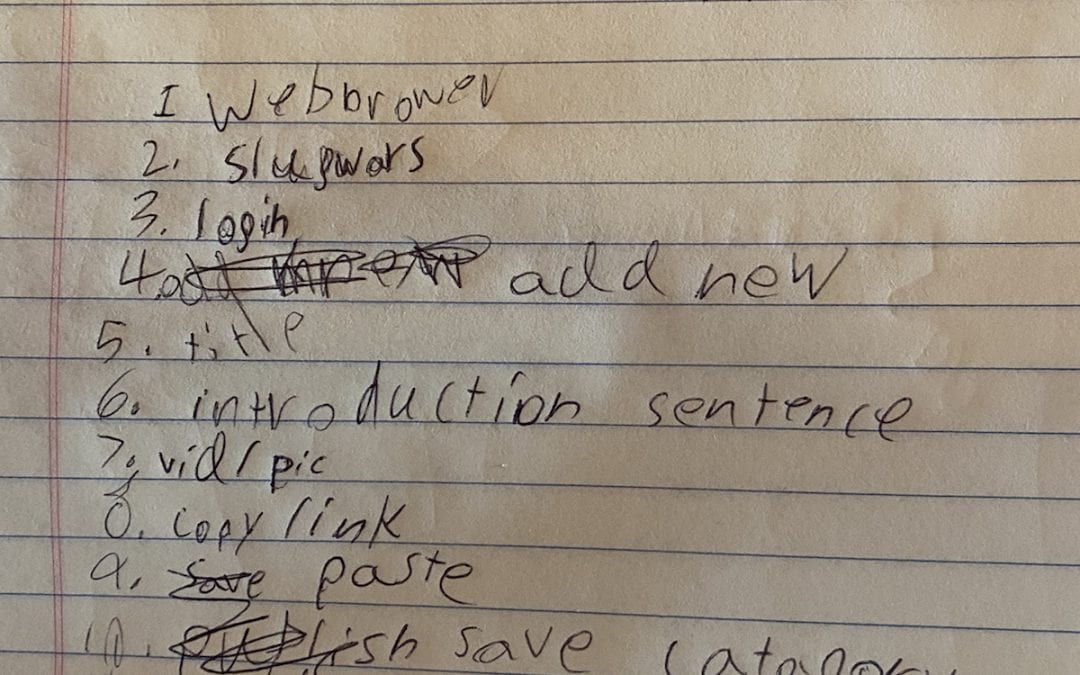 I Webbrower
2. slugwars
3. login
4. add new
5. title
6. introduction sentence
7. vid/pic
8. copy link
9. save paste
10. publish save catagory